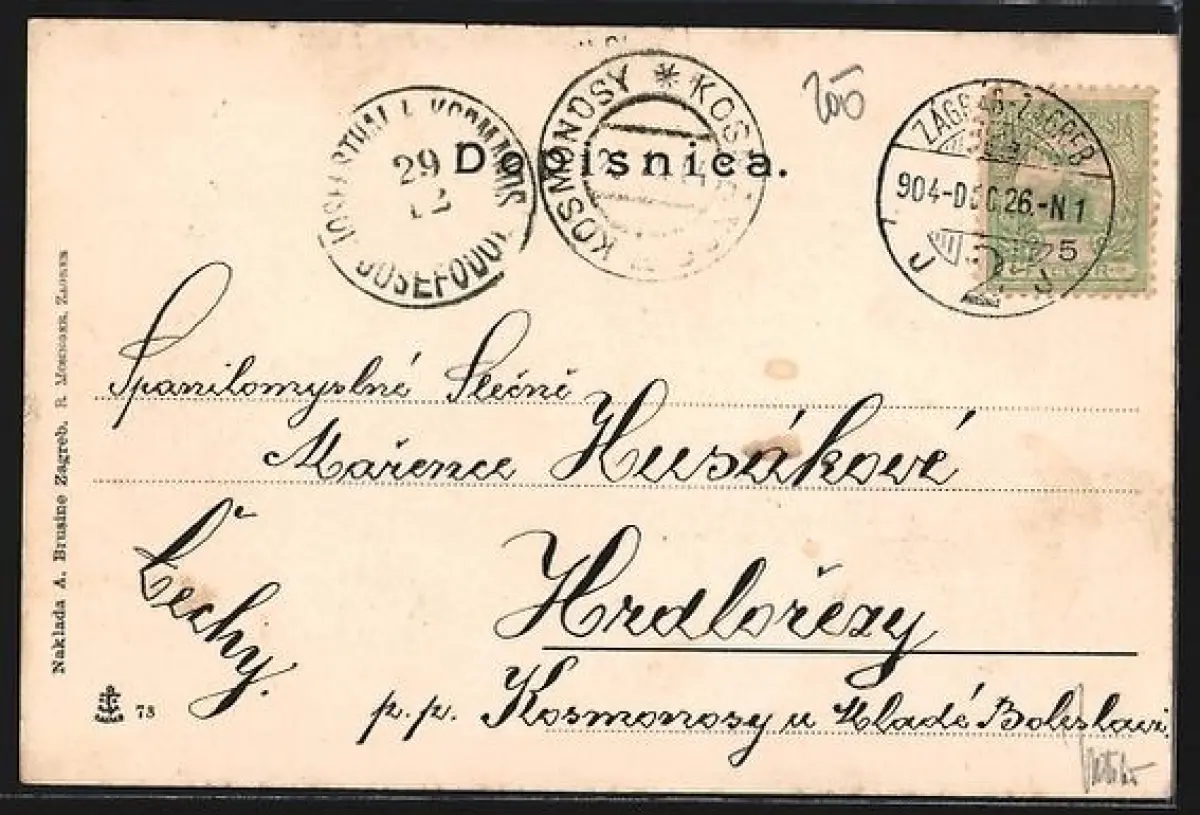 Dopisnica.
29
12
JOSEFODOL
KOSMONOSY * KOSMONOSY
ZÁGRÁB-ZAGREB
904-DEC.26.-N1
5
FILLER
205
Spanilomyslné Slečně
Mařence Husákové
Hrdlořezy
p.p. Kosmonosy u Mladé Boleslavi
Čechy.
Nakladа A. Brusine Zagreb. R. Mosinger, Zagreb
73